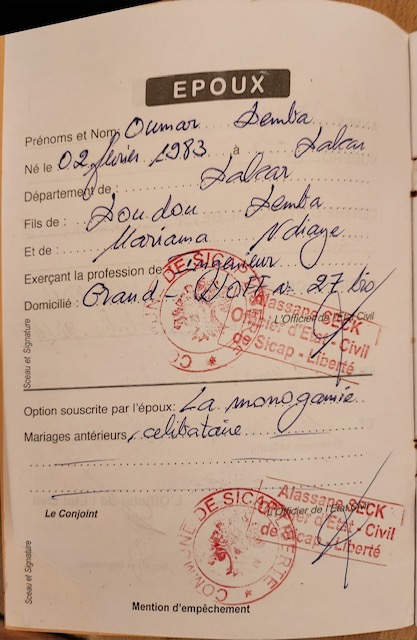 EPOUX
Prénoms et Nom: Oumar Demba
Né le 02 février 1983 à Dakar
Département de : Dakar
Fils de : Doudou Demba
Et de : Mariama Ndiaye
Exerçant la profession de ingénieur
Domicilié : Grand-Yoff n° 27 bis
L'Officier de l'Etat Civil
COMMUNE DE SICAP LIBERTE
Alassane SECK
Officier d'Etat - Civil
de Sicap - Liberté
Sceau et Signature
Option souscrite par l'époux: La monogamie
Mariages antérieurs celibataire
Le Conjoint
L'Officier de l'Etat Civil
COMMUNE DE SICAP LIBERTE
Alassane SECK
Officier d'Etat - Civil
de Sicap - Liberté
Sceau et Signature
Mention d'empêchement